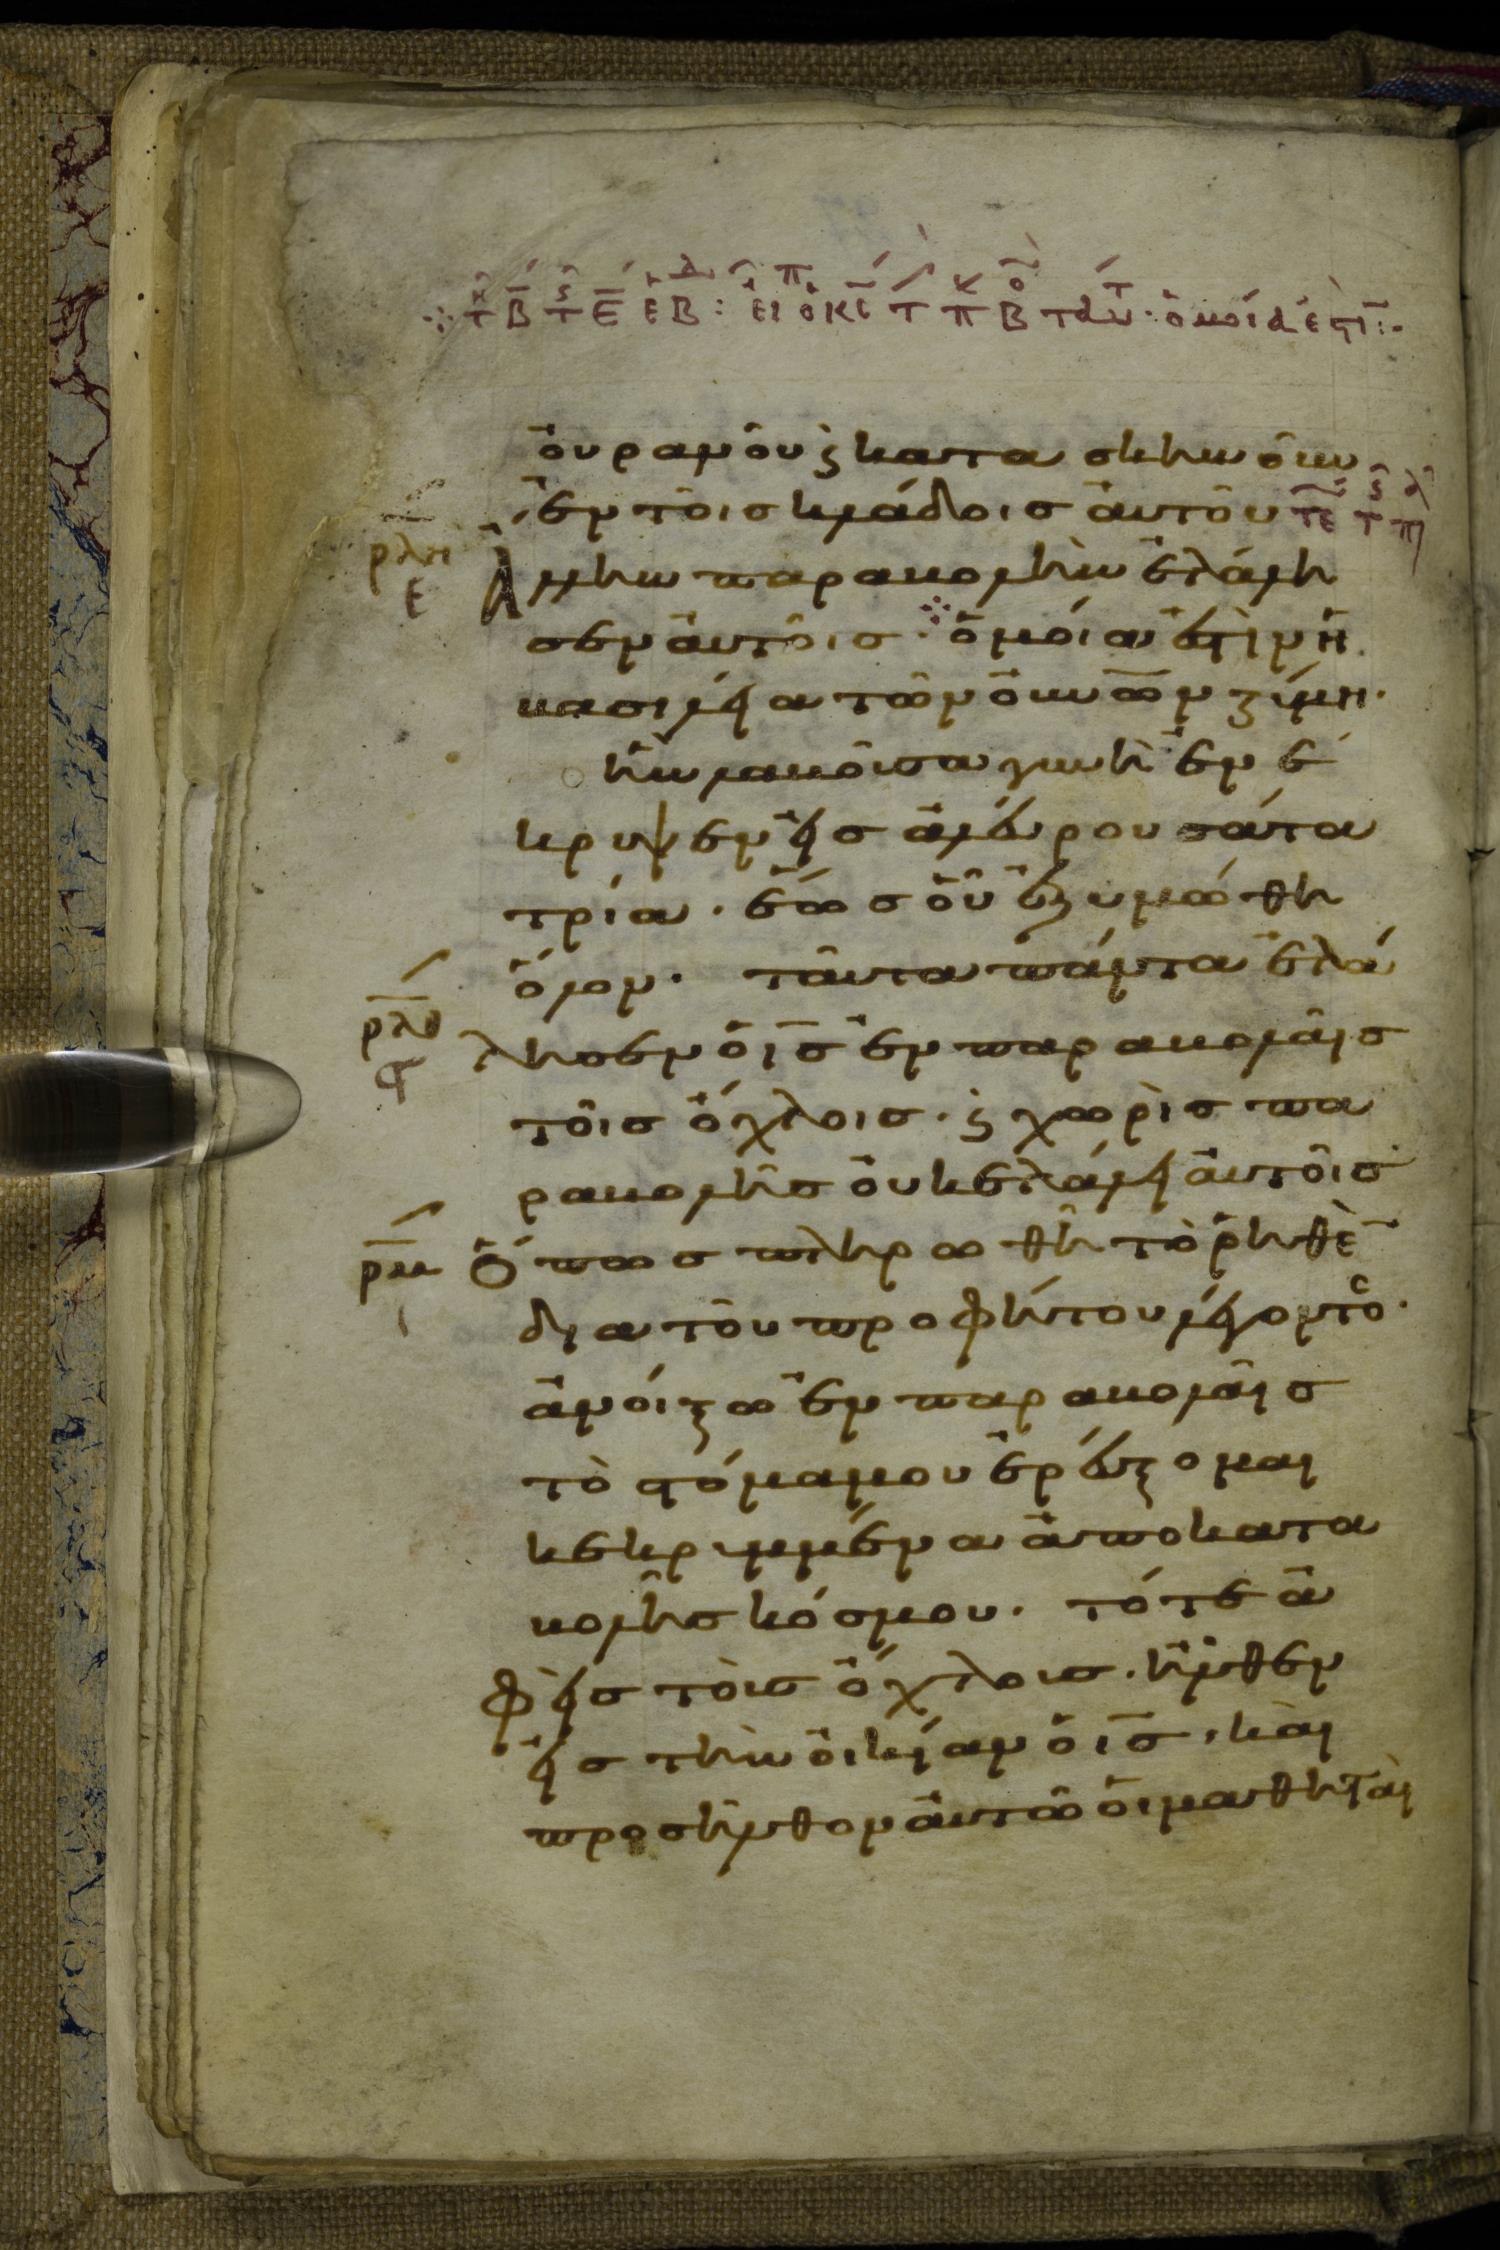 οὐρανοῦ ϗ κατασκηνοῦν
ἐν τοῖς κλάδοις αὐτοῦ
ρλη
ε
Ἄλλην παραβολὴν ἐλάλη
σεν αὐτοῖς · ὁμοία ἐστὶν ἡ
βασιλεία τῶν οὐνῶν ζύμη ·
ἣν λαβοῦσα γυνὴ ἐνέ
κρυψεν εἰς ἀλεύρου σάτα
τρία · ἕως οὗ ἐζυμώθη
ὅλον · ταῦτα πάντα ἐλά
ρλθ
ϛ
λησεν ὁ ισ ἐν παραβολαῖς
τοῖς ὄχλοις · ϗ χωρὶς πα
ραβολῆς οὐκ ἐλάλει αὐτοῖς
ρμ
ι
Ὅπως πληρωθῆ τὸ ῥηθὲ
δια τοῦ προφήτου λέγοντο ·
ἀνοίξω ἐν παραβολαῖς
τὸ στόμα μου ἐρεύξομαι
κεκρυμμένα ἀπο κατα
βολῆς κόσμου · τότε ἀ
φεὶς τοὺς ὄχλους · ἦλθεν
εἰς τὴν οἰκίαν ὁ ισ · καὶ
προσῆλθον αὐτῶ οἱ μαθηταὶ